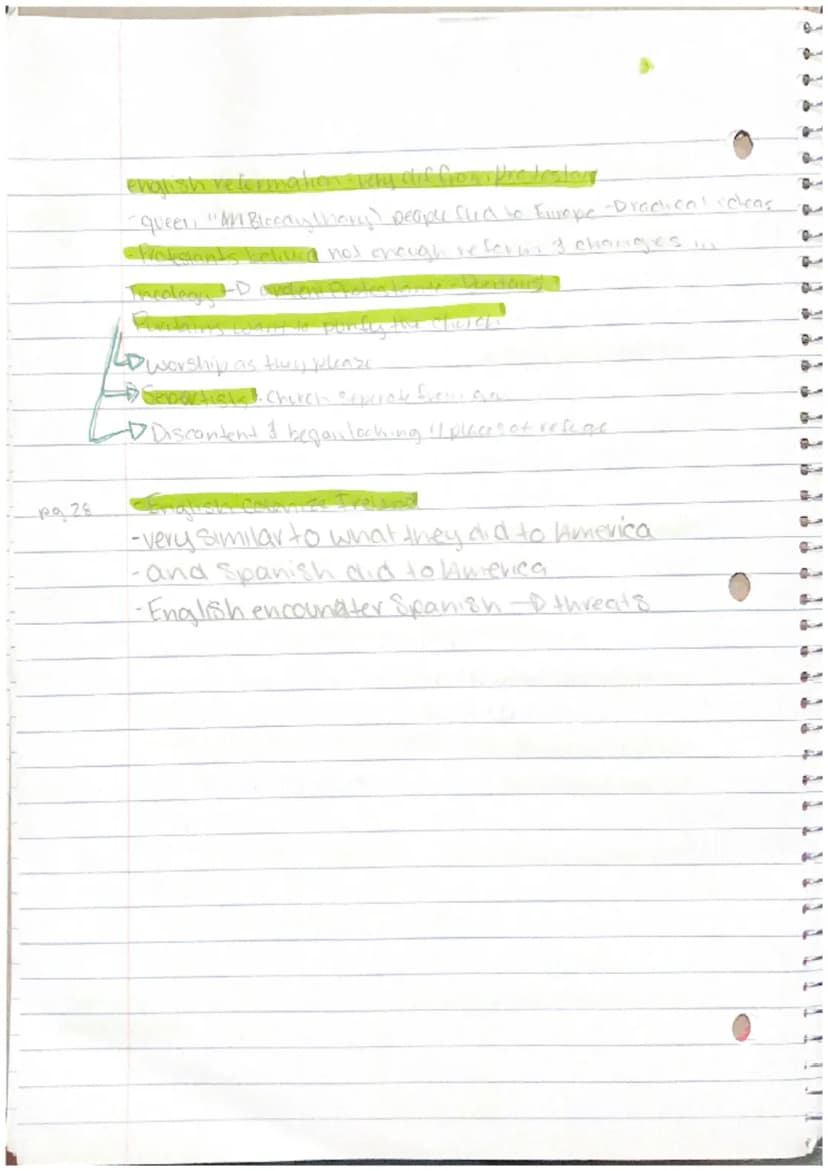 english reformation very dif from Protestan
-queen "      Bloody Mary") people fled to Europe → radical ideas
-Protestants believed not enough reform & changes in
Theology →          Protestants - Puritans
Puritans want to purify the church
→ Worship as they please
→ Separatists. Church seperate from
→ Discontent & began looking 4 places of refuge
pg. 28 -English colonize Ireland
-very similar to what they did to America
-and Spanish did to America
-English encounter Spanish → threats